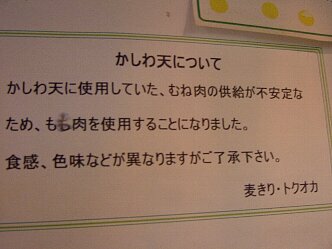 かしわ天について
かしわ天に使用していた、むね肉の供給が不安定な
ため、もも肉を使用することになりました。
食感、色味などが異なりますがご了承下さい。
麦きり・トクオカ